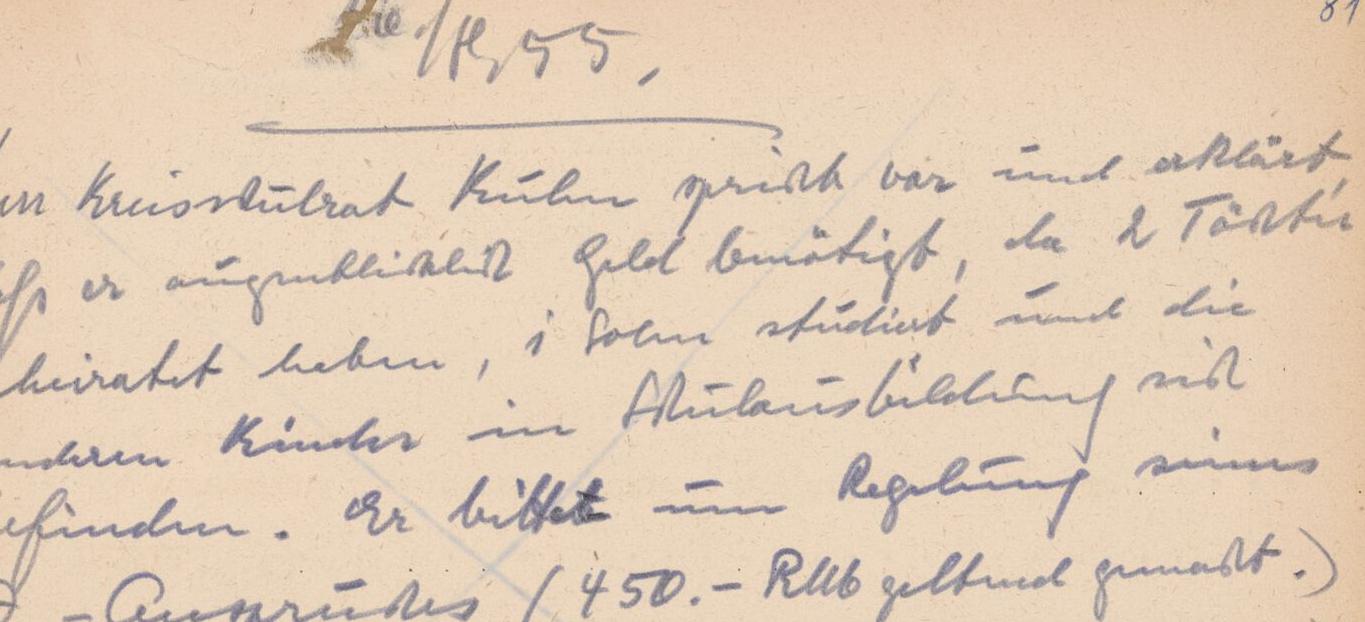 81
55.
Kreisschulrat Kuhn spricht vor und erklärt,
er augenblicklich Geld benötigt, da 2 Töchter
heiratet haben, 1 Sohn studiert und die
nderen Kinder in Schulausbildung sich
efinden. Er bittet um Regelung seines
- Anspruches (450.- RM geltend gemacht.)